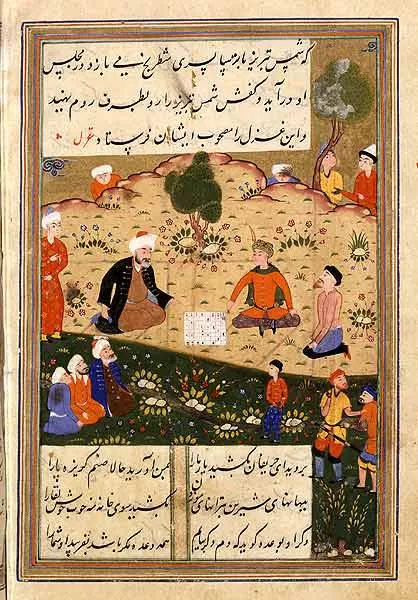 که شمس تبریز با ترسا پسری شطرنج می بازد در مجلس
او در آید و کفش شمس تبریز را رو بطرف روم بنهید
و این غزل را مصحوب ایشان فرستاد غزل
بروید ای حریفان بکشید یار ما را بمن آورید حالا صنم کریزه پا را
بهانهای شیرین بترانهای موزون بکشید سوی خانه مه خوب خوش لقا را
وکر او بوعده کوید که دم دکر بیایم همه وعده مکر باشد بفریبد او شما را